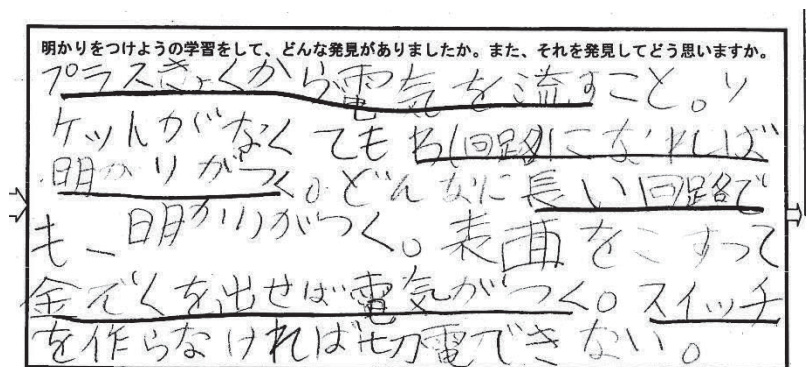 明かりをつけようの学習をして、どんな発見がありましたか。また、それを発見してどう思いますか。
プラスきょくから電気を流すこと。ソ
ケットがなくてもわ(回路)になれば
明かりがつく。どんなに長い回路で
も、明かりがつく。表面をこすって
金ぞくを出せば電気がつく。スイッチ
を作らなければ切電できない。